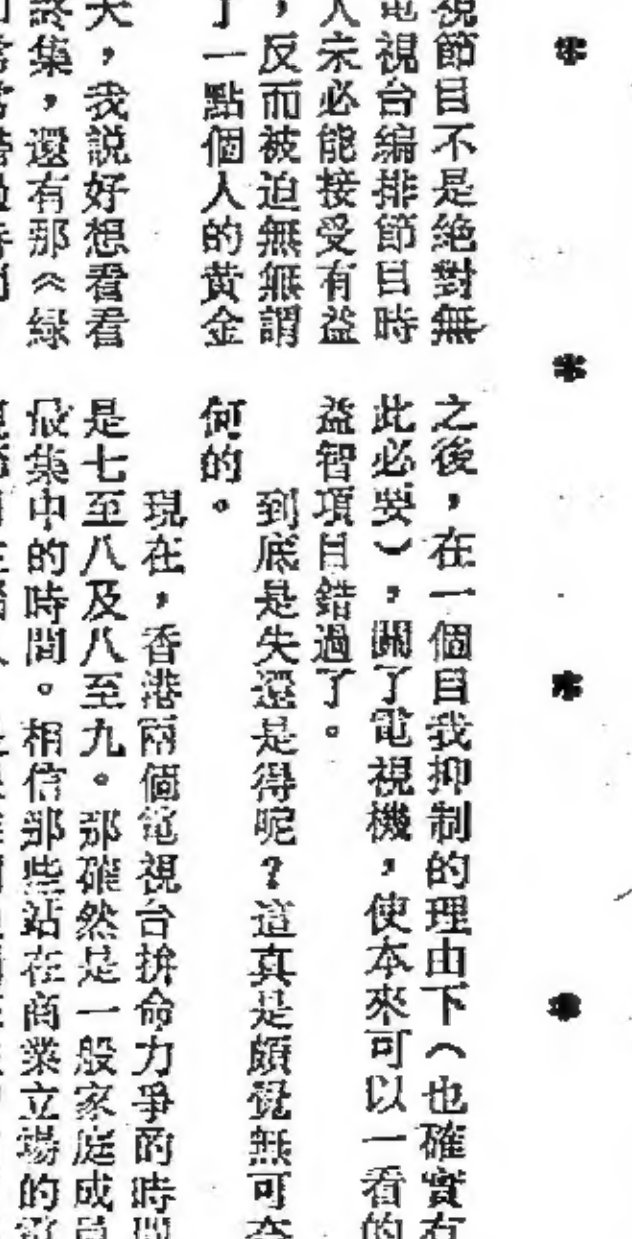 視節目不是絕對無
電視台編排節目時
人未必能接受有益
，反而被迫無無謂
了一點個人的黃金
天，我説好想看看
終集，還有那《綠
之後，在一個自我抑制的理由下（也確實有
此必要），關了電視機，使本來可以一看的
益智項目錯過了。
到底是失還是得呢？這真是頗覺無可奈
何的。
現在，香港兩個電視台拚命力爭的時間
是七至八及八至九。那確然是一般家庭成員
最集中的時間。相信那些站在商業立場的電